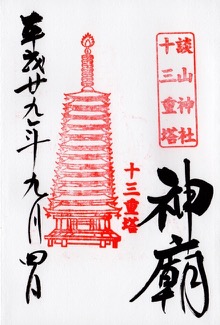 談山神社
十三重塔
神廟
十三重塔
平成廿九年九月四日